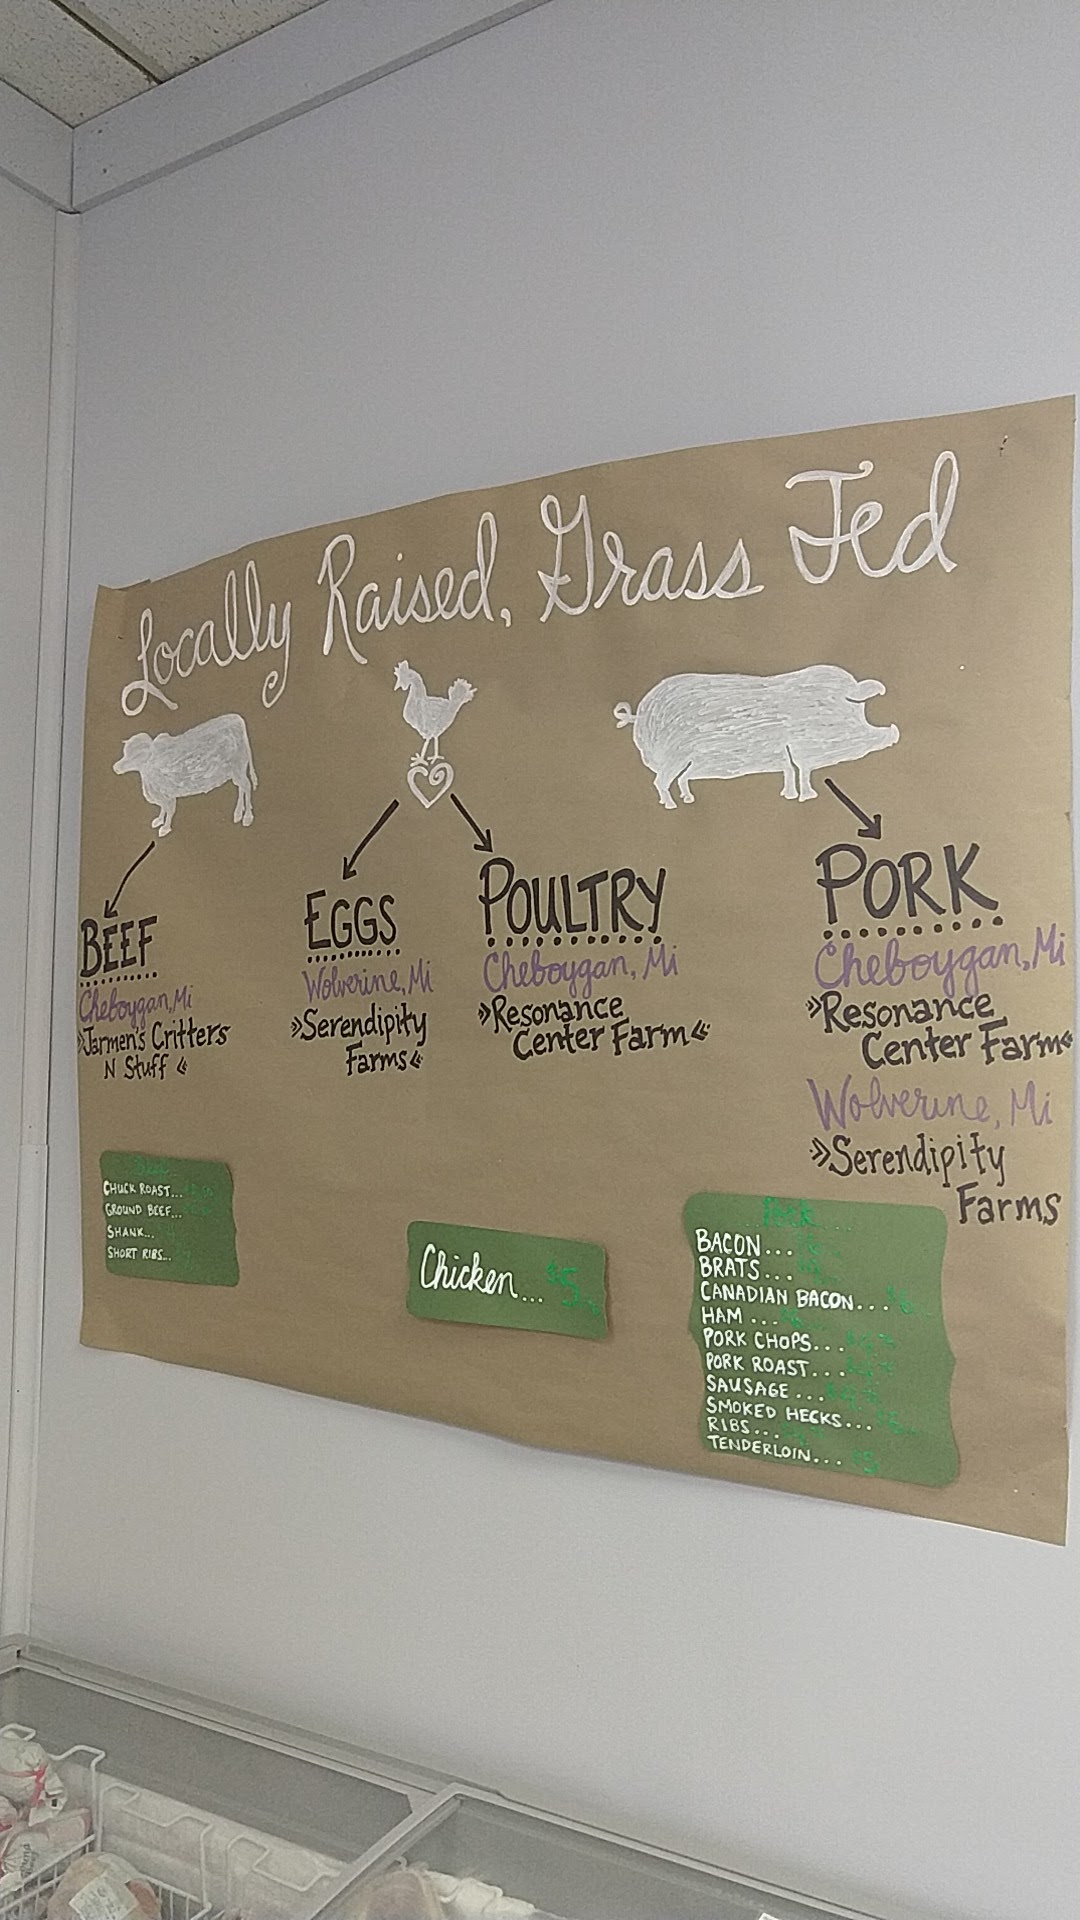 Locally Raised, Grass Fed
BEEF
Cheboygan, Mi
»Jarmen's Critters
N Stuff «
EGGS
Wolverine, Mi
»Serendipity
Farms«
POULTRY
Cheboygan, Mi
»Resonance
Center Farm«
PORK
Cheboygan, Mi
»Resonance
Center Farm«
Wolverine, Mi
»Serendipity
Farms
CHUCK ROAST...
GROUND BEEF...
SHANK...
SHORT RIBS...
Chicken... $5
Pork
BACON...
BRATS...
CANADIAN BACON...
HAM...
PORK CHOPS...
PORK ROAST...
SAUSAGE...
SMOKED HECKS...
RIBS...
TENDERLOIN...